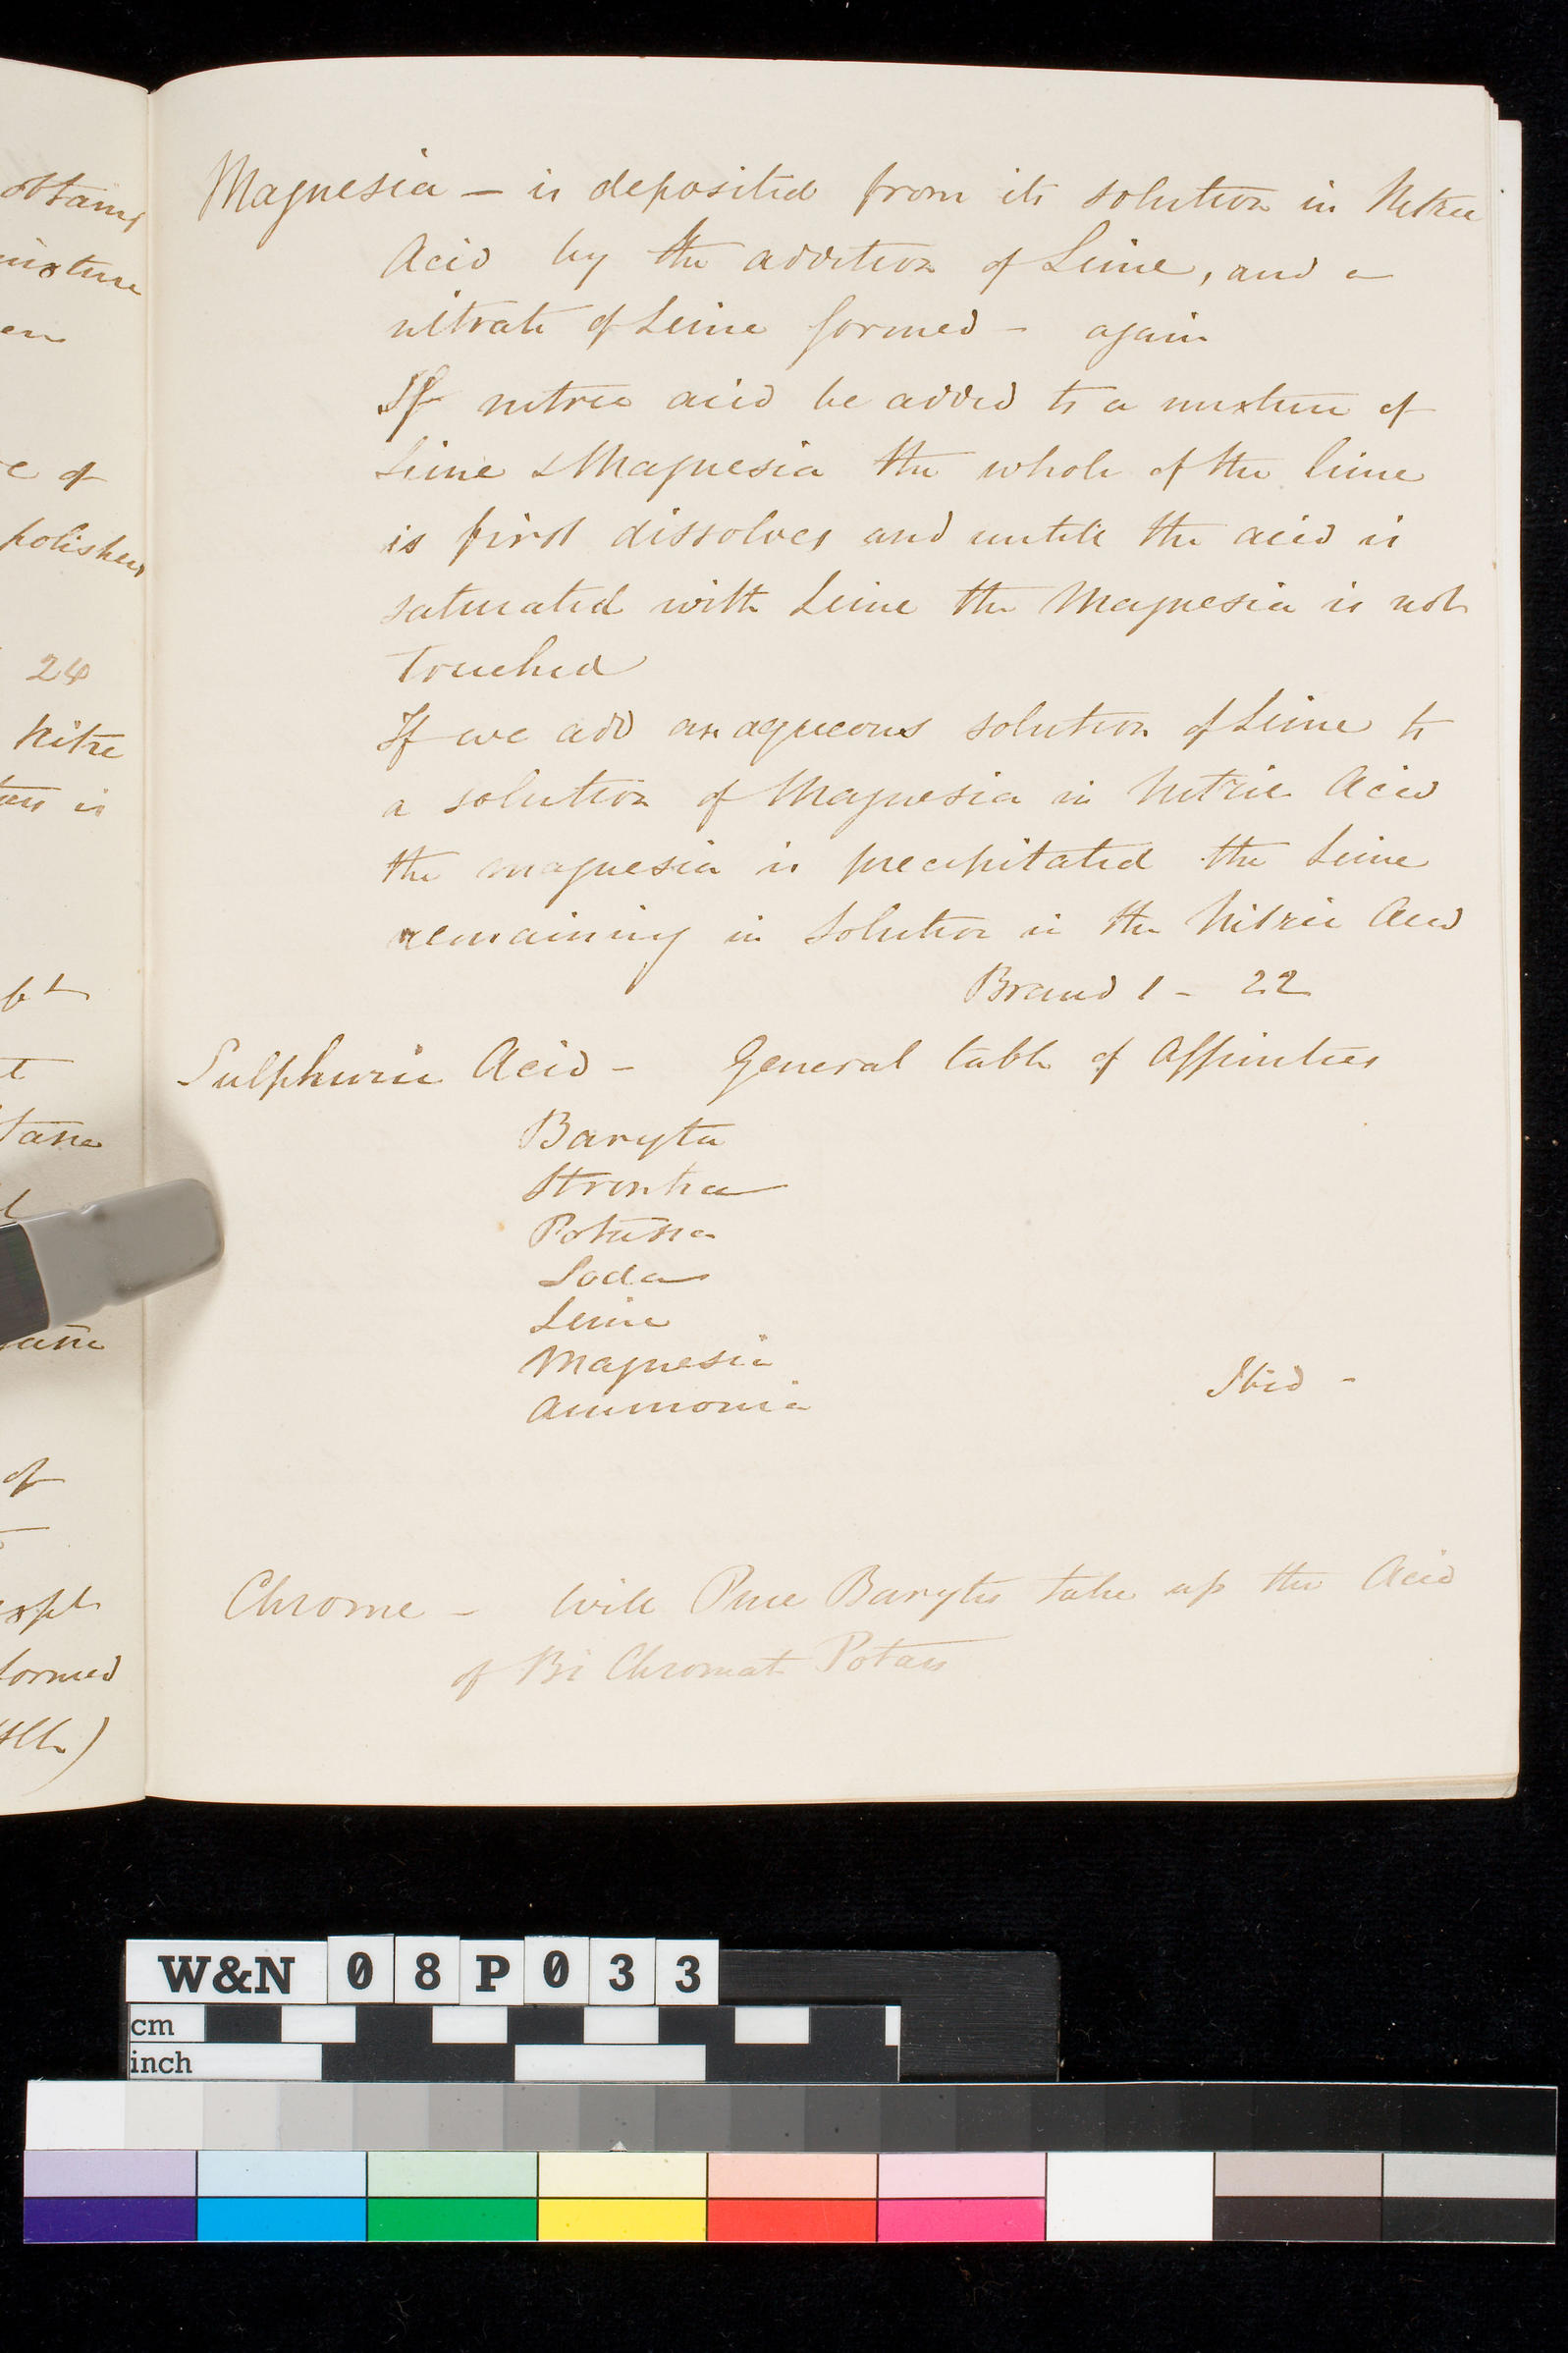 obtains
mixture
en
e of
polished
24
Nitre
tass is
pt
t
Magnesia - is deposited from its solution in Nitric
Acid by the addition of Lime, and a
nitrate of Lime formed - again
If nitric acid be added to a mixture of
Lime & Magnesia the whole of the lime
is first dissolves and untill the acid is
saturated with Lime the Magnesia is not
touched
If we add an aqueous solution of Lime to
a solution of Magnesia in Nitric Acid
the magnesia is precipitated the Lime
remaining in solution in the Nitric Acid
Brand 1 - 22
Sulphuric Acid - General table of Affinities
Baryta
Strontia
Potassa
Soda
Lime
Magnesia
Ammonia
Ibid -
Chrome - Will Pure Barytes take up the Acid
of Bi Chromate Potass
of
expt
formed
W&N 08P033
cm
inch